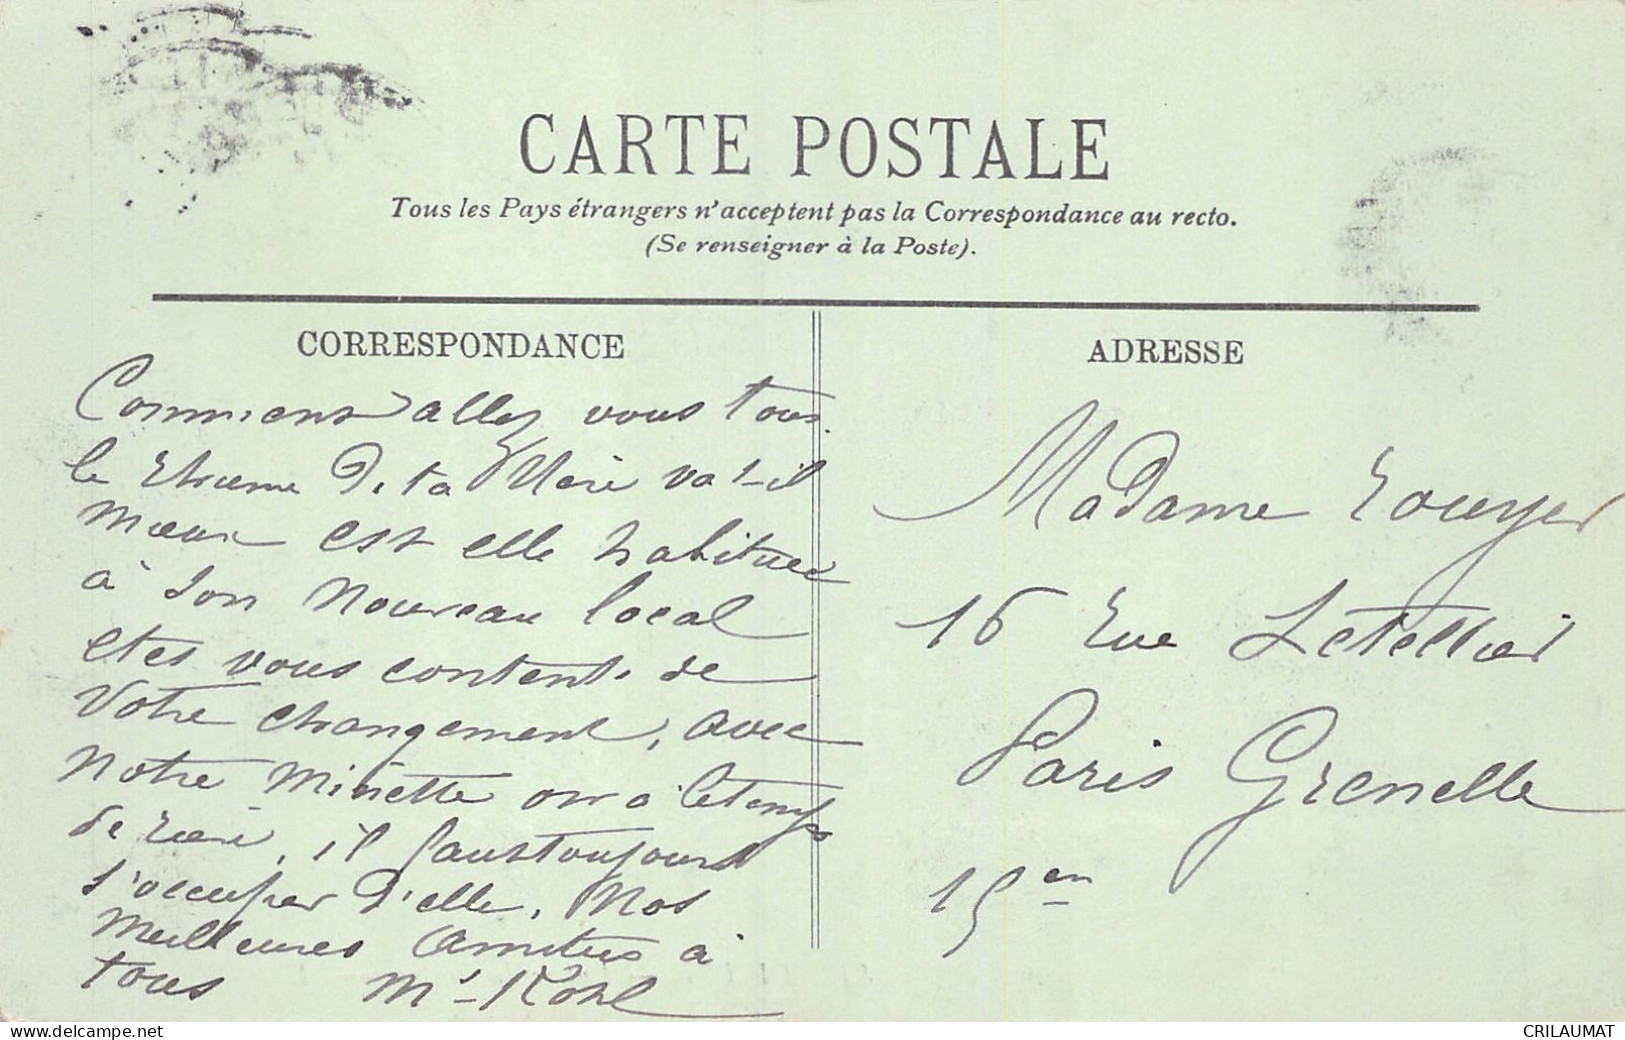 CARTE POSTALE
Tous les Pays étrangers n'acceptent pas la Correspondance au recto.
(Se renseigner à la Poste).
CORRESPONDANCE
Comment allez vous tous
le rhume De ta Mère va t-il
mieux est elle habituée
à son nouveau local
etes vous contents de
votre changement, avec
notre Minette on a le temps
de rien, il faut toujours
s'occuper d'elle. Nos
meilleures amitiés à
tous
ADRESSE
Madame Rouyer
16 Rue Letellier
Paris Grenelle
15 en
www.delcampe.net
CRILAUMAT